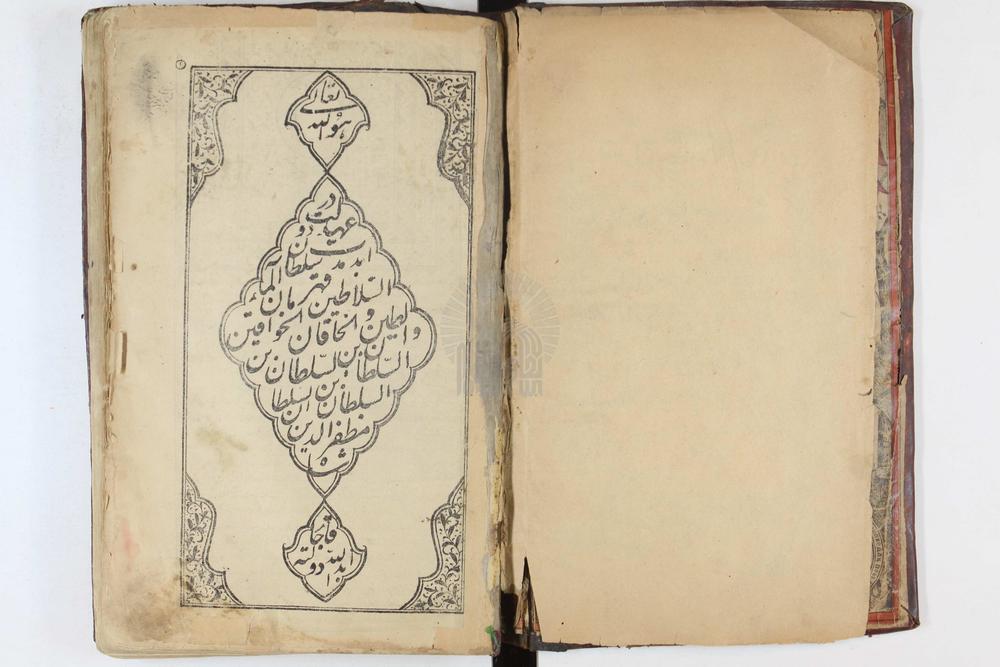 هوالله تعالی
در
عهد دولت
ابد مدت سلطان
السّلاطین قهرمان المآء
والطین و الخاقان الخواقین
السّلطان بن السّلطان بن
السلطان بن السلطان
مظفرالدین
شاه
قاجار
ابدالله دولته